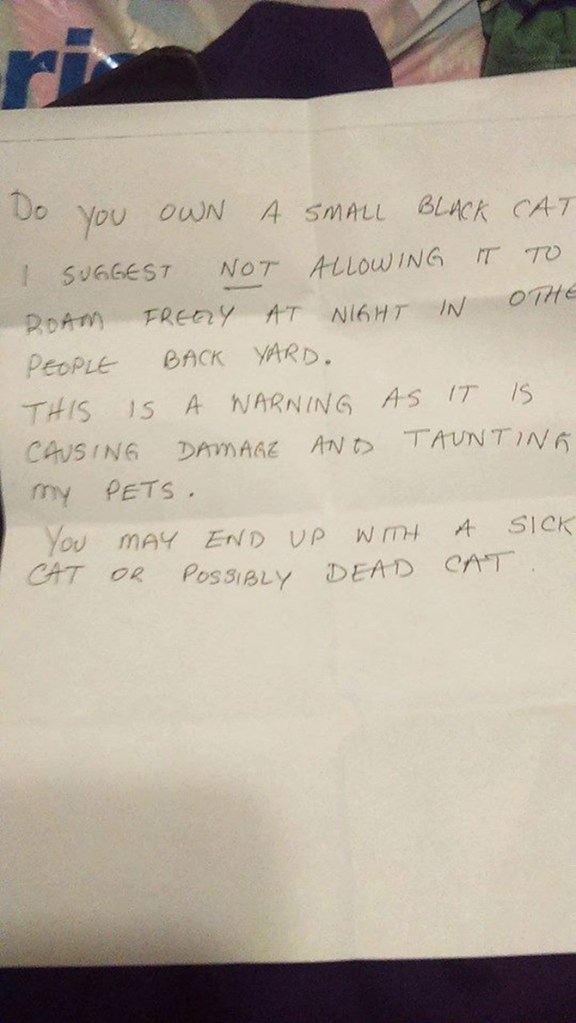 ric
Do YOU OWN A SMALL BLACK CAT
I SUGGEST NOT ALLOWING IT TO
ROAM FREELY AT NIGHT IN OTHE
PEOPLE BACK YARD.
THIS IS A WARNING AS IT IS
CAUSING DAMAGE AND TAUNTING
MY PETS.
YOU MAY END UP WITH A SICK
CAT OR POSSIBLY DEAD CAT.